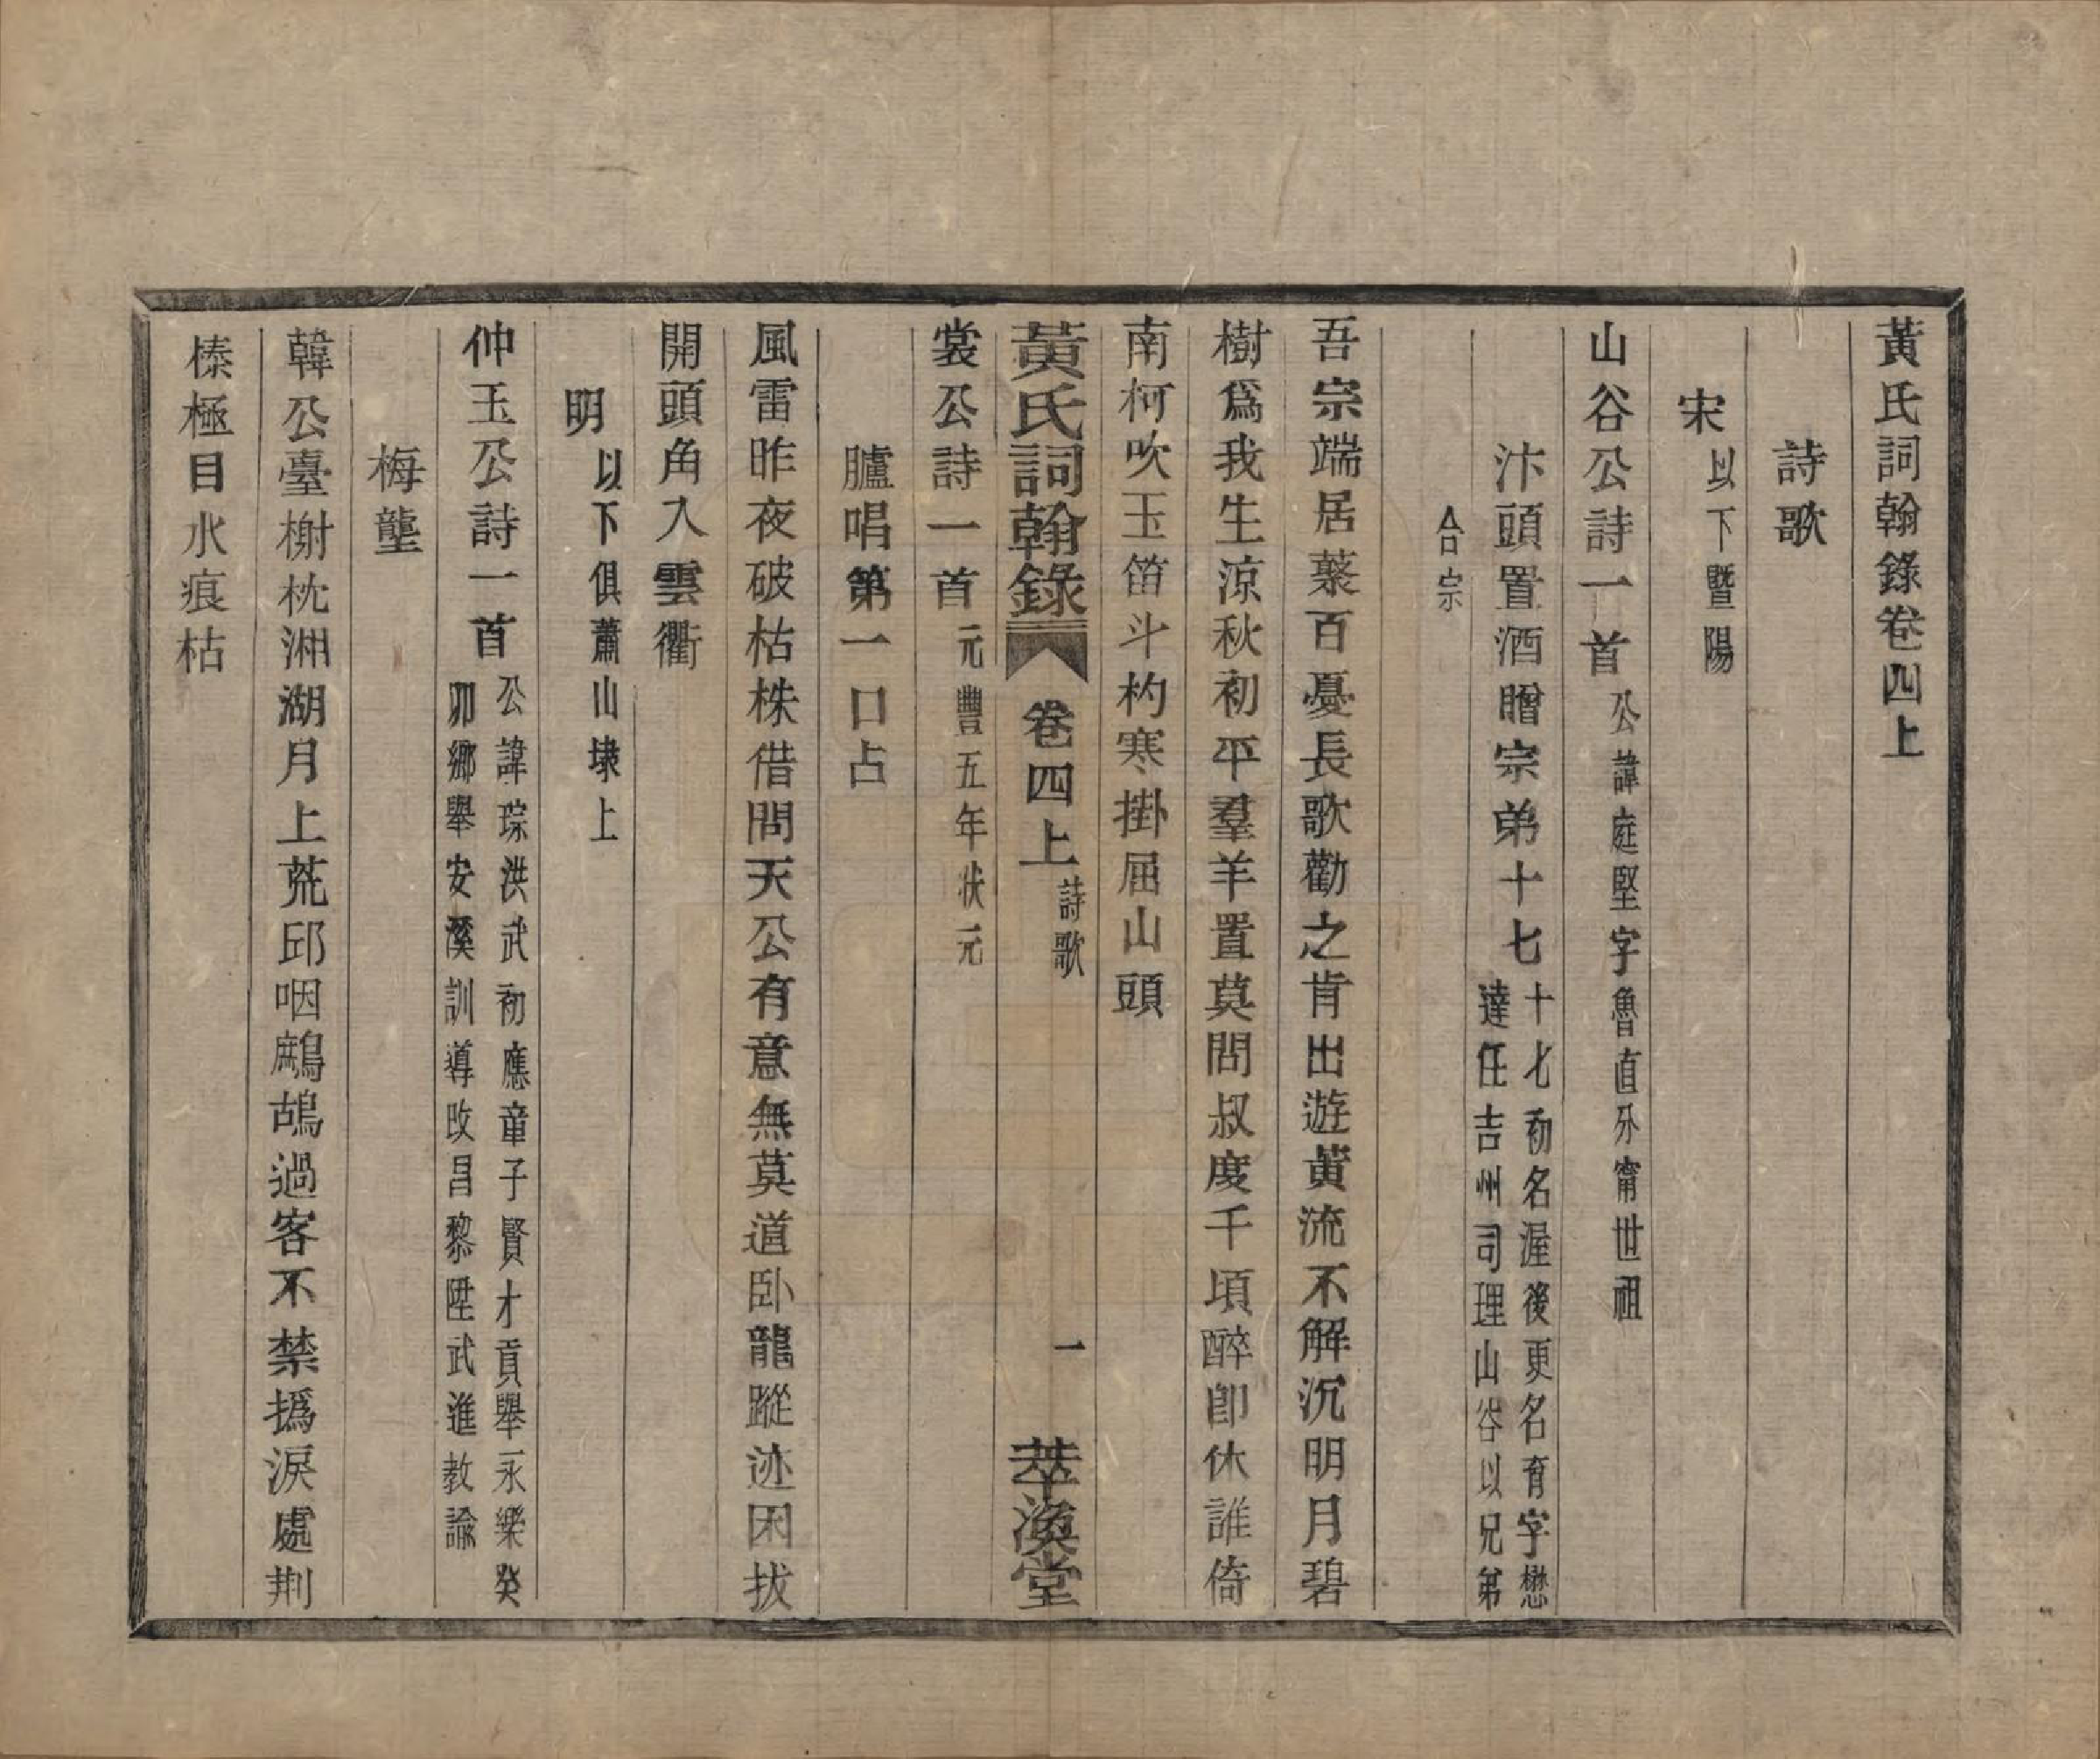 黃氏詞翰錄卷四上
詩歌
宋以下暨陽
山谷公詩一首公諱庭堅字魯直分甯世祖
汴頭置酒贈宗弟十七十才初名渥後更名育字懋
達任吉州司理山谷以兄弟
合宗
吾宗端居藂百憂長歌勸之肯出遊黃流不解沉明月碧
樹爲我生涼秋初平羣羊置莫問叔度千頃醉卽休誰倚
南柯吹玉笛斗杓寒掛屈山頭
黃氏詞翰錄 卷四上 詩歌 一 萃渙堂
裳公詩一首元豐五年狀元
臚唱第一口占
風雷昨夜破枯株借問天公有意無莫道臥龍蹤迹困拔
開頭角入雲衢
明以下俱蕭山埭上
仲玉公詩一首公諱琮洪武初應童子賢才貢舉永樂癸
卯鄉舉安溪訓導改昌黎陞武進教諭
梅壟
韓公臺榭枕湘湖月上荒邱咽鷓鴣過客不禁撝淚處荆
榛極目水痕枯